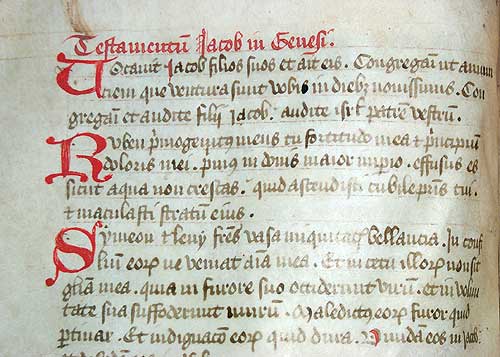 Testamentū Jacob in Genesi.
Vocavit Jacob filios suos et ait eis. Congregam̄ ut annun
ciem que ventura sunt vobis in dieb; novissimis. Con
gregam̄ et audite filij Jacob. audite isrl̄ patrem vestrū.
Ruben p̄mogenitus meus tu fortitudo mea et p̄ncipiū
doloris mei. prius in donis maior imp̄io. effusus es
sicut aqua non crescas. quia ascendisti cubile pris tui.
et maculasti stratum eius.
Symeon et levy frēs vasa iniquitatis bellancia. In consi
lium eoꝝ ne veniat aīa mea. Et in cetu illoꝝ non sit
glīa mea. quia in furore suo occiderunt virum. et in volun
tate sua suffoderunt murum. Maledictus eoꝝ furor quia
ptinax. Et indignacō eoꝝ quia dura. Dividam eos in Jacob